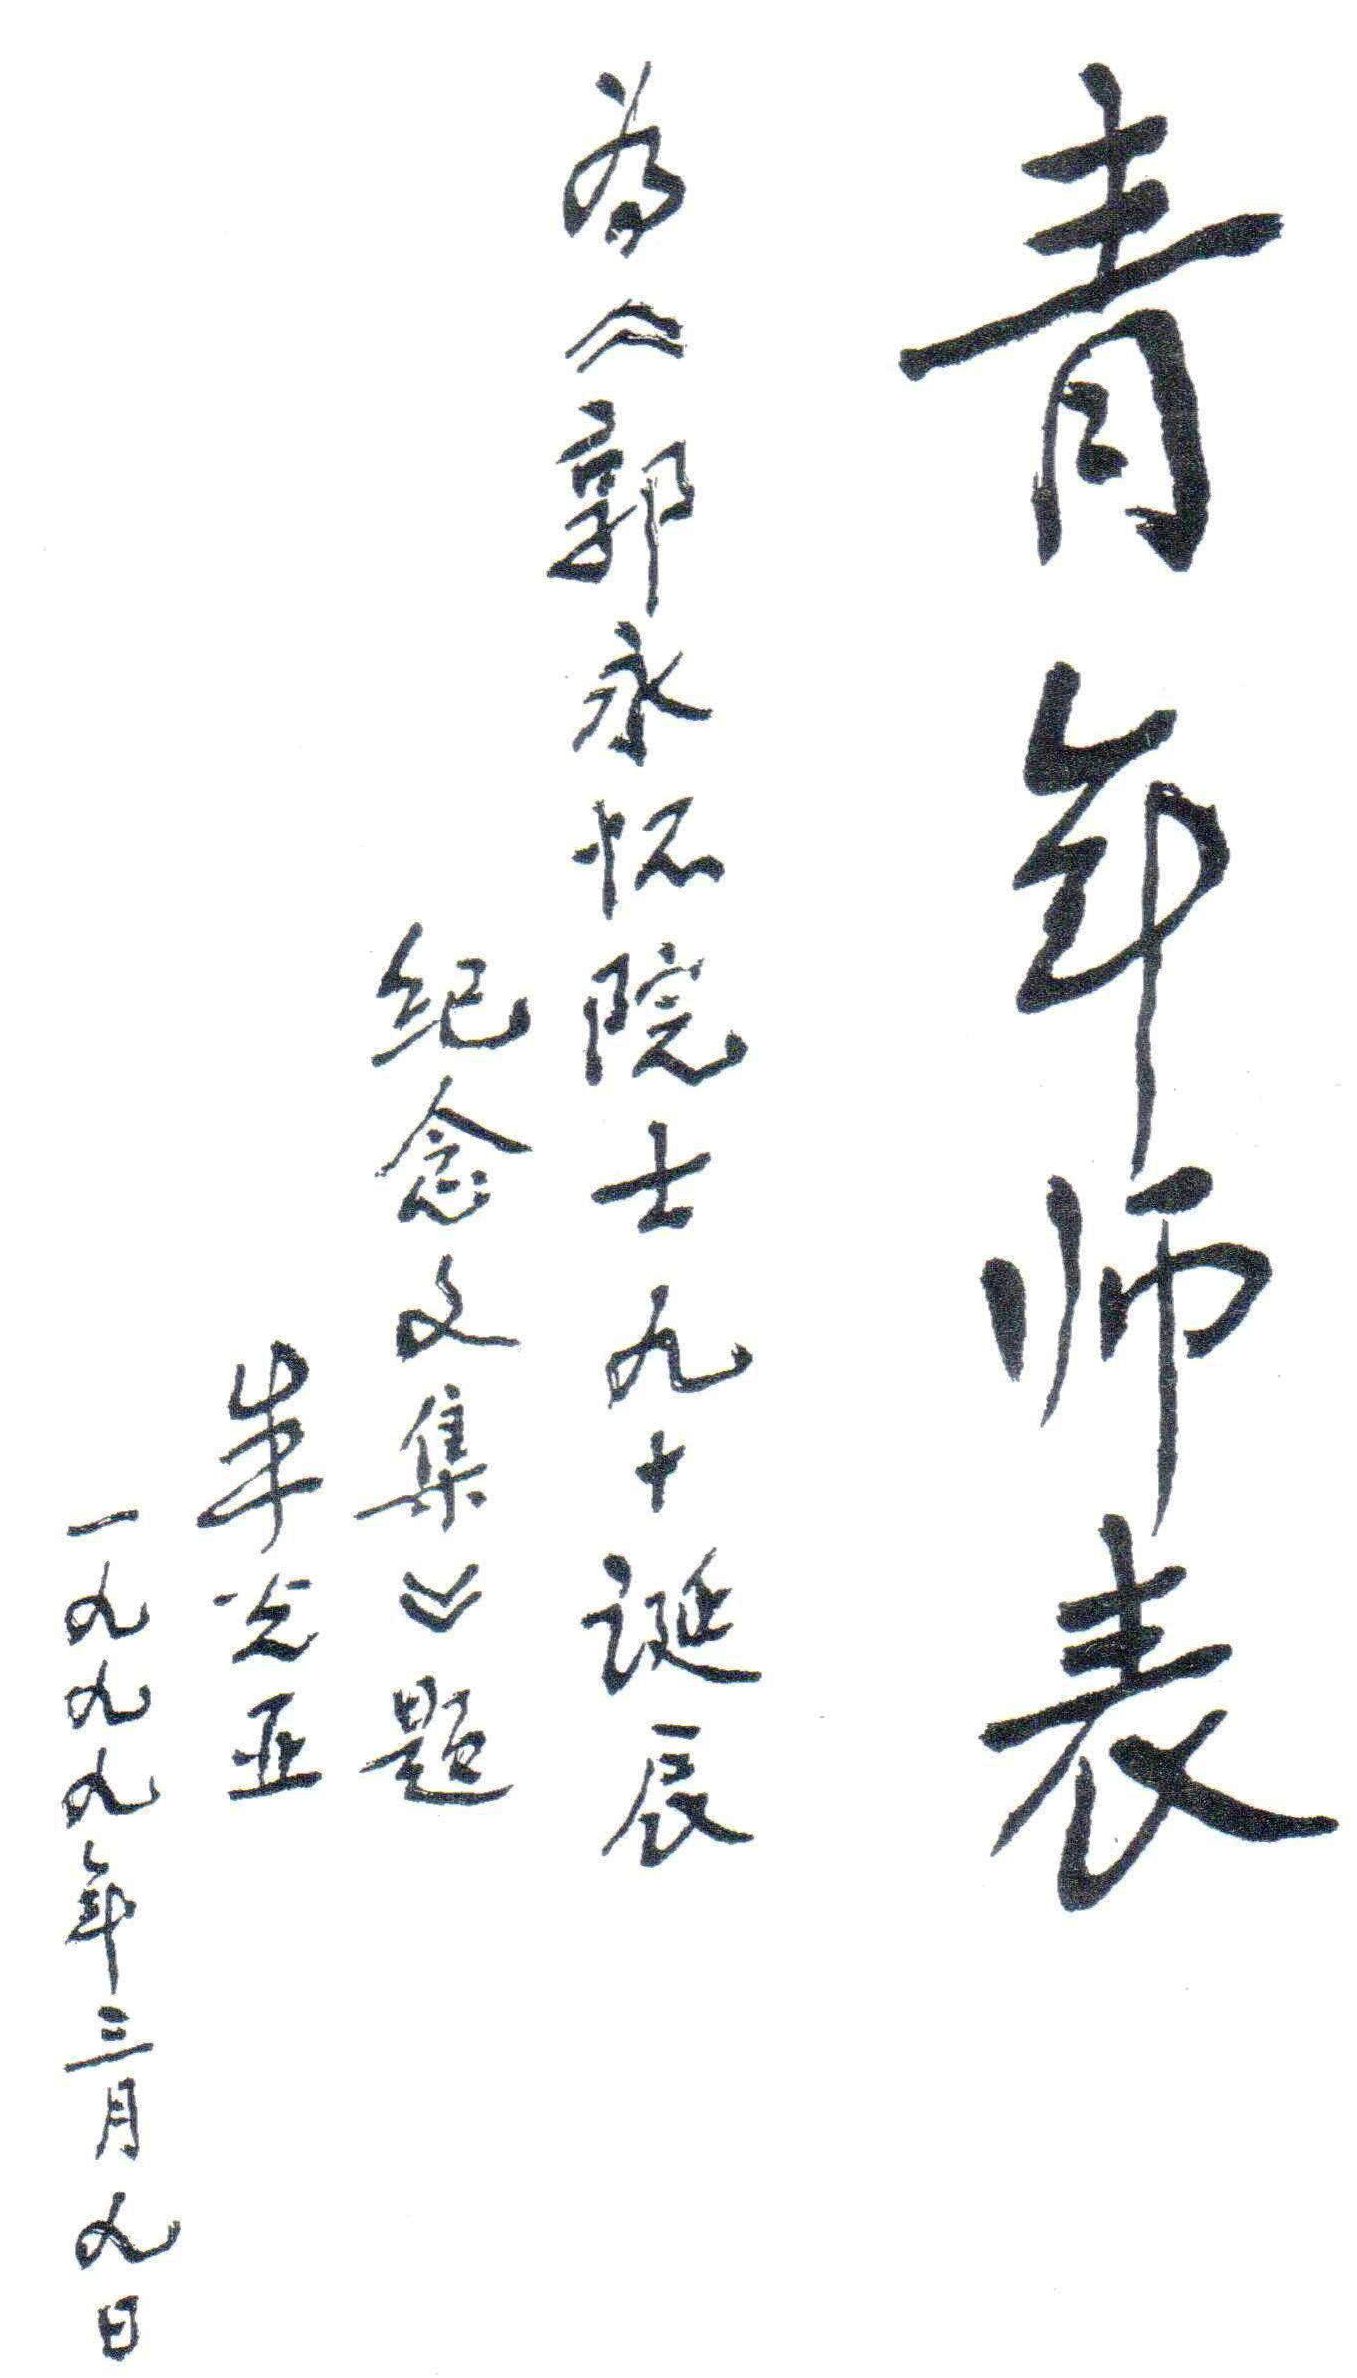 青年师表
为《郭永怀院士九十诞辰
纪念文集》题
朱光亚
一九九九年三月九日